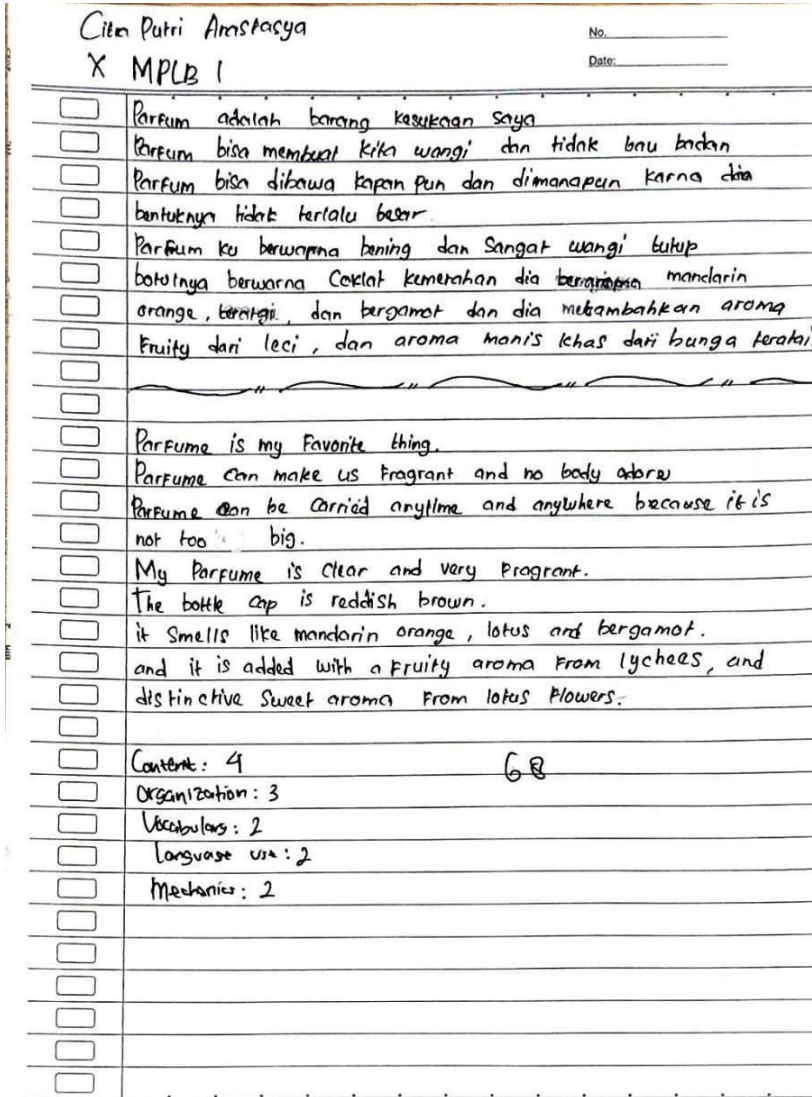 Citra Putri Anastasya
No.
X MPLB 1
Date:
Parfum adalah barang kesukaan saya
Parfum bisa membuat kita wangi dan tidak bau badan
Parfum bisa dibawa kapan pun dan dimanapun karna dia
bentuknya tidak terlalu besar.
Parfum ku berwarna bening dan sangat wangi tutup
botolnya berwarna Coklat kemerahan dia mandarin
orange, dan bergamot dan dia menambahkan aroma
Fruity dari leci, dan aroma manis khas dari bunga teratai.
Parfume is my Favorite thing.
Parfume can make us Fragrant and no body odore
Parfume can be Carried anytime and anywhere because it is
not too big.
My Parfume is clear and very Fragrant.
The bottle cap is reddish brown.
it Smells like mandarin orange, lotus and bergamot.
and it is added with a Fruity aroma From lychees, and
distinctive Sweet aroma From lotus Flowers.
Content: 4
68
Organization: 3
Vocabulary: 2
Language use: 2
Mechanics: 2